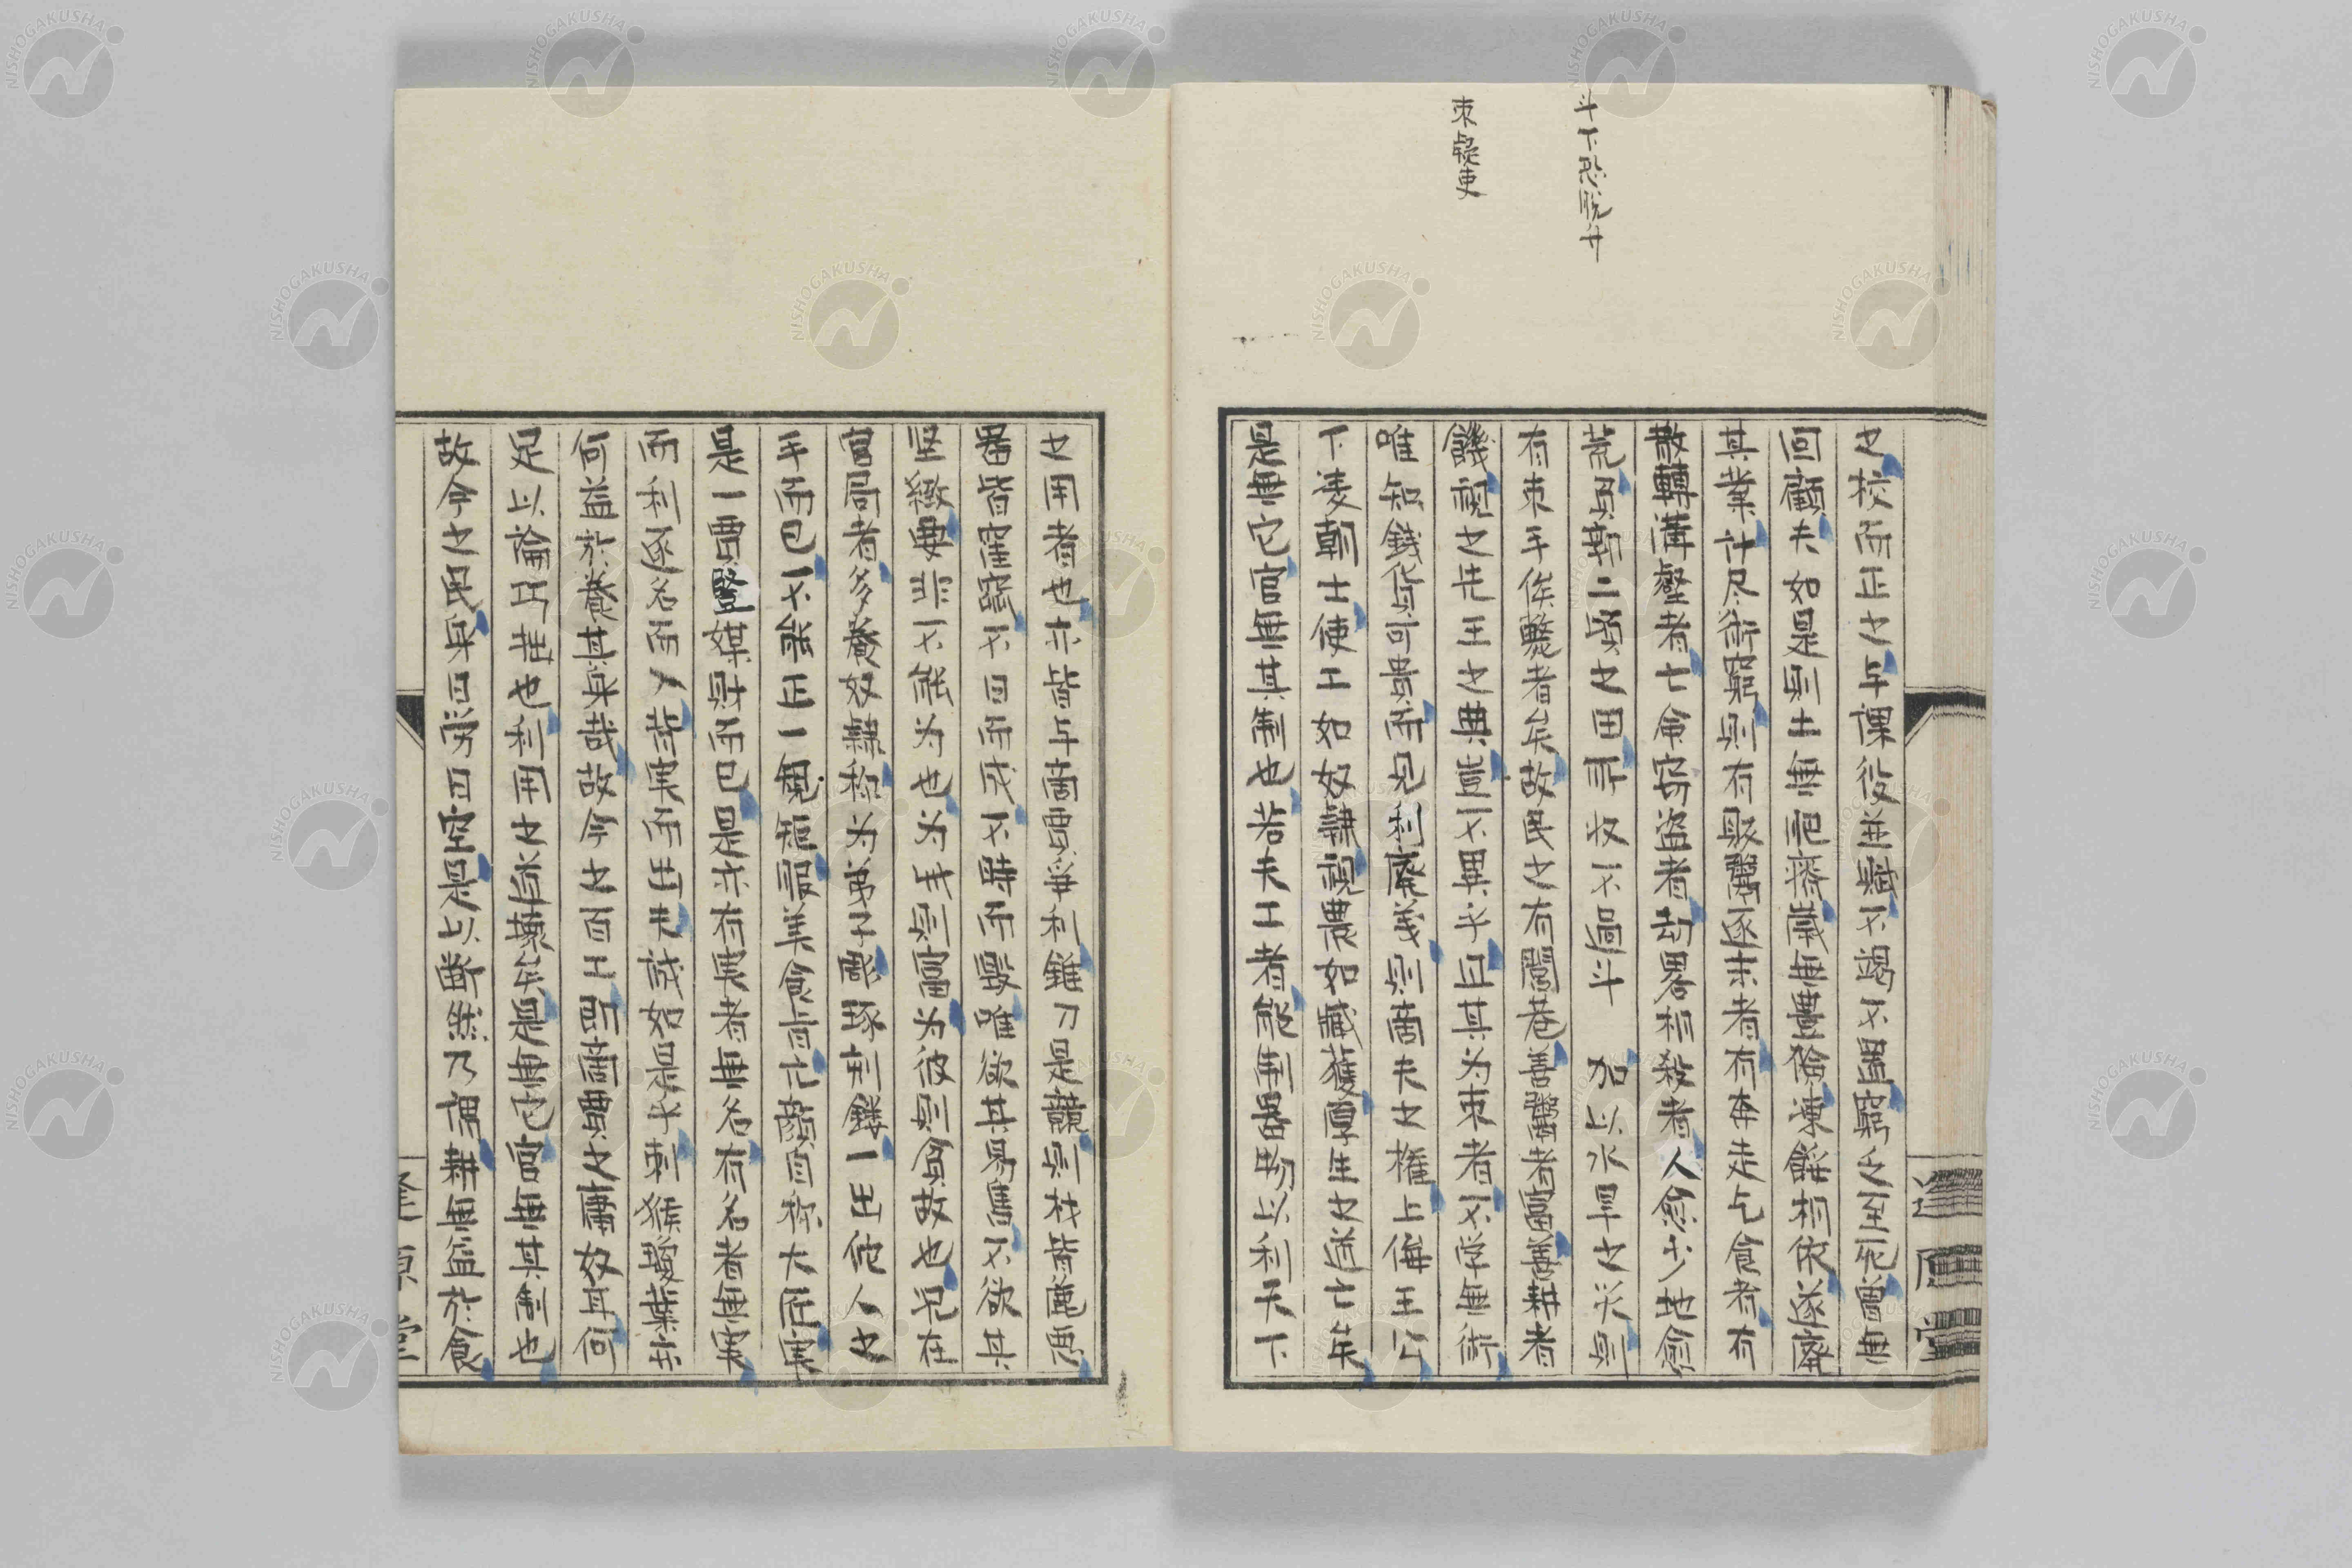 斗下恐脱廾
束疑吏
之校而正之与課役並賦不竭不置窮之至死曽無
回顧夫如是則土無肥瘠歳無豊倹凍餓相依遂廃
其業計尽術窮則有販鬻逐末者有奔走乞食者有
散轉溝壑者亡命窃盗者劫畧相殺者人愈少地愈
荒員斯二頃之田所收不過斗 加以水旱之災則
有束手俟斃者矣故民之有閭巷善鬻者富善耕者
饑視之先王之典豈不異乎且其为束者不学無術
唯知錢貨可貴而見利廃義則商夫之権上侔王公
下凌朝士使工如奴隷視農如臧獲厚生之道亡矣
是無它官無其制也若夫工者能制器物以利天下
之用者也亦皆与商賈爭利錐刀是競則材皆鹿悪
器皆窪窳不日而成不時而毀唯欲其易售不欲其
堅緻要非不能为也为我則富为彼則貧故也況在
官局者多養奴隷称为弟子彫琢刻鏤一出他人之
手而已不能正一規矩服美食旨亡顔自称大匠寔
是一賈豎媒財而已是亦有寔者無名有名者無寔
而利逐名而入背寔而出夫誠如是乎刺猴瓊葉亦
何益於養其身哉故今之百工所商賈之庸奴耳何
足以論巧拙也利用之道壊矣是無它官無其制也
故今之民身日労日空是以断然乃謂耕無益於食
逢原堂